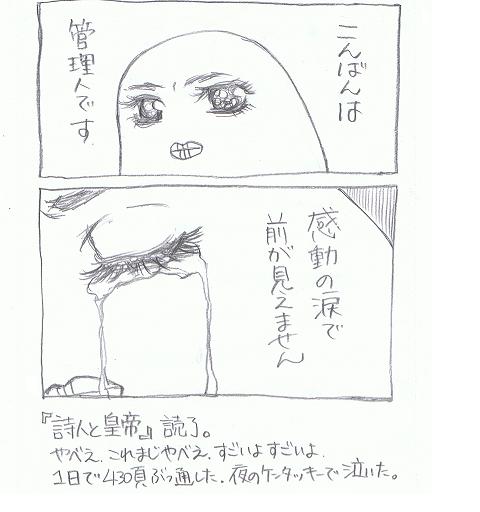 こんばんは
管理人です
感動の涙で
前が見えません
『詩人と皇帝』読了。
やべえ、これまじやべえ。すごいよすごいよ
1日で430頁ぶっ通した。夜のケンタッキーで泣いた。